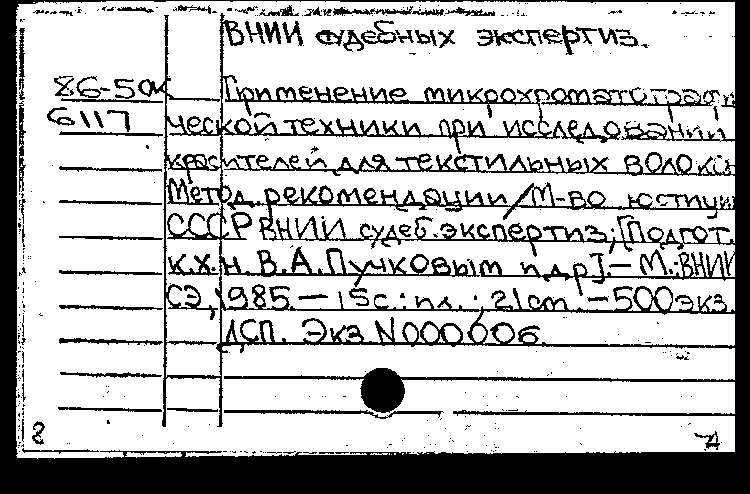 ВНИИ судебных экспертиз.
86-5дк Применение микрохроматографи
6117 ческой техники при исследовании
красителей для текстильных волокон
Метод. рекомендации/М-во юстиции
СССР ВНИИ судеб. экспертиз; [Подгот.
к.х.н. В.А. Пучковым и др]. — М.: ВНИИ
СЭ, 1985. — 15с.: ил.; 21 см. — 500 экз.
ДСП. Экз N000006.
8